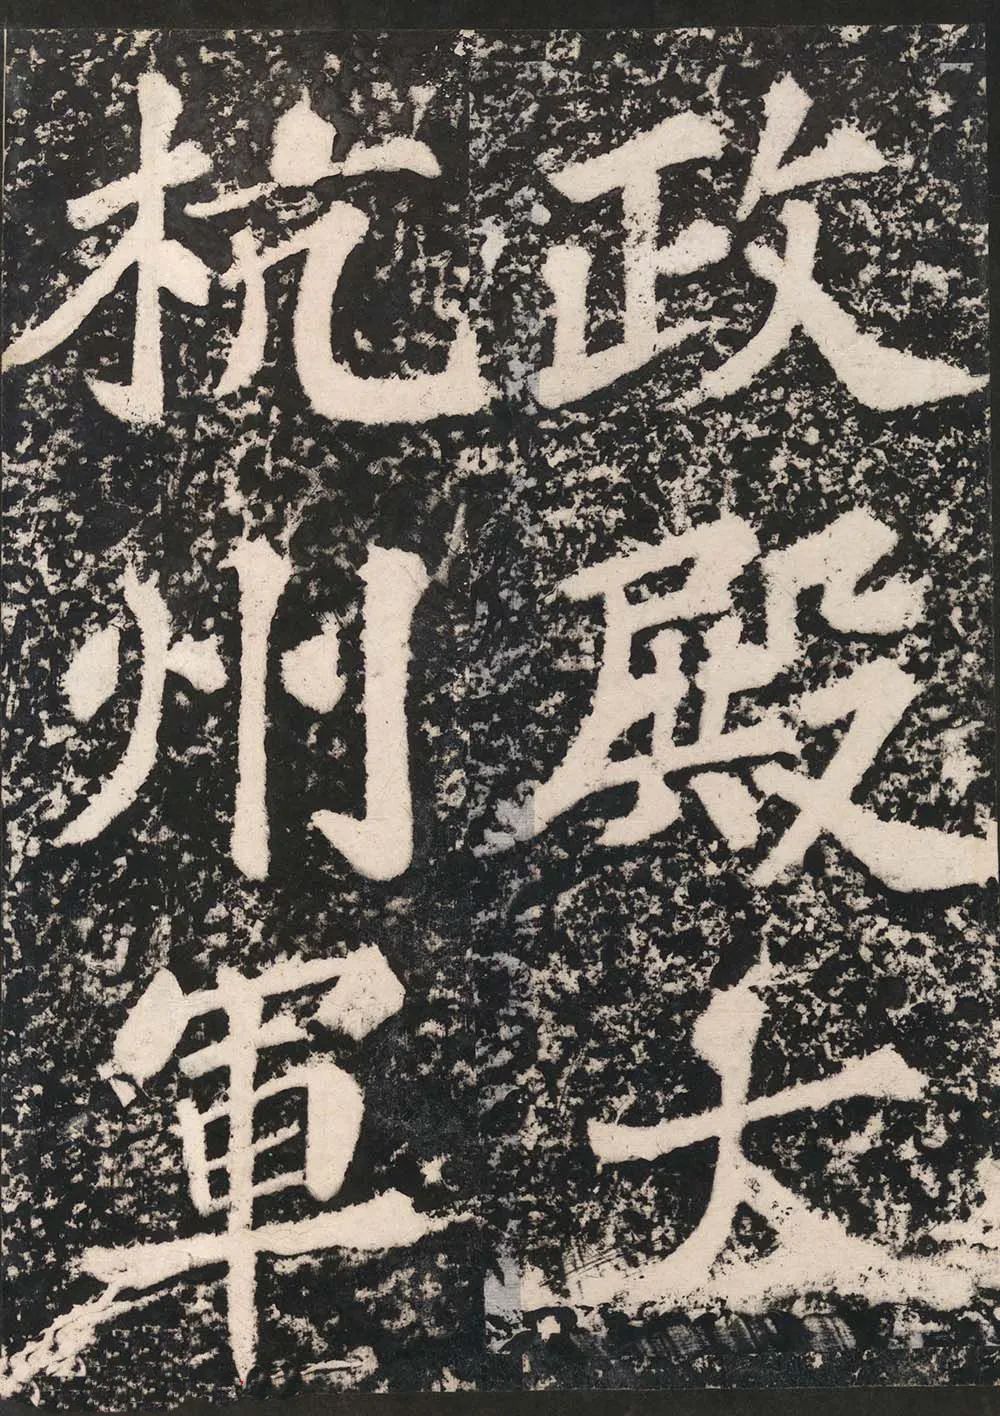 政殿大
杭州軍